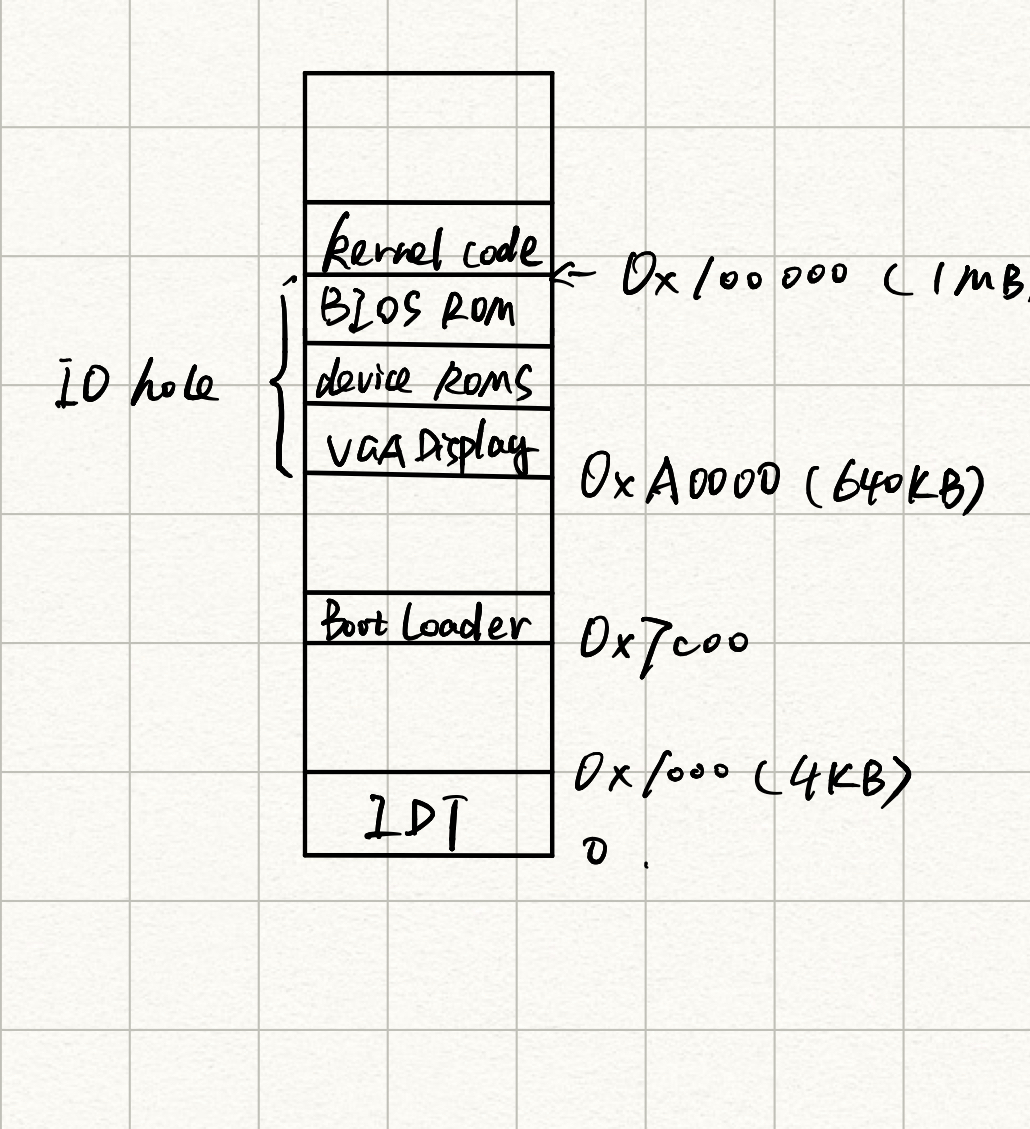 kernel code
0x100000 (1MB
BIOS ROM
IO hole
device ROMS
VGA Display
0xA0000 (640KB)
Boot Loader
0x7c00
0x1000 (4KB)
IDT
0